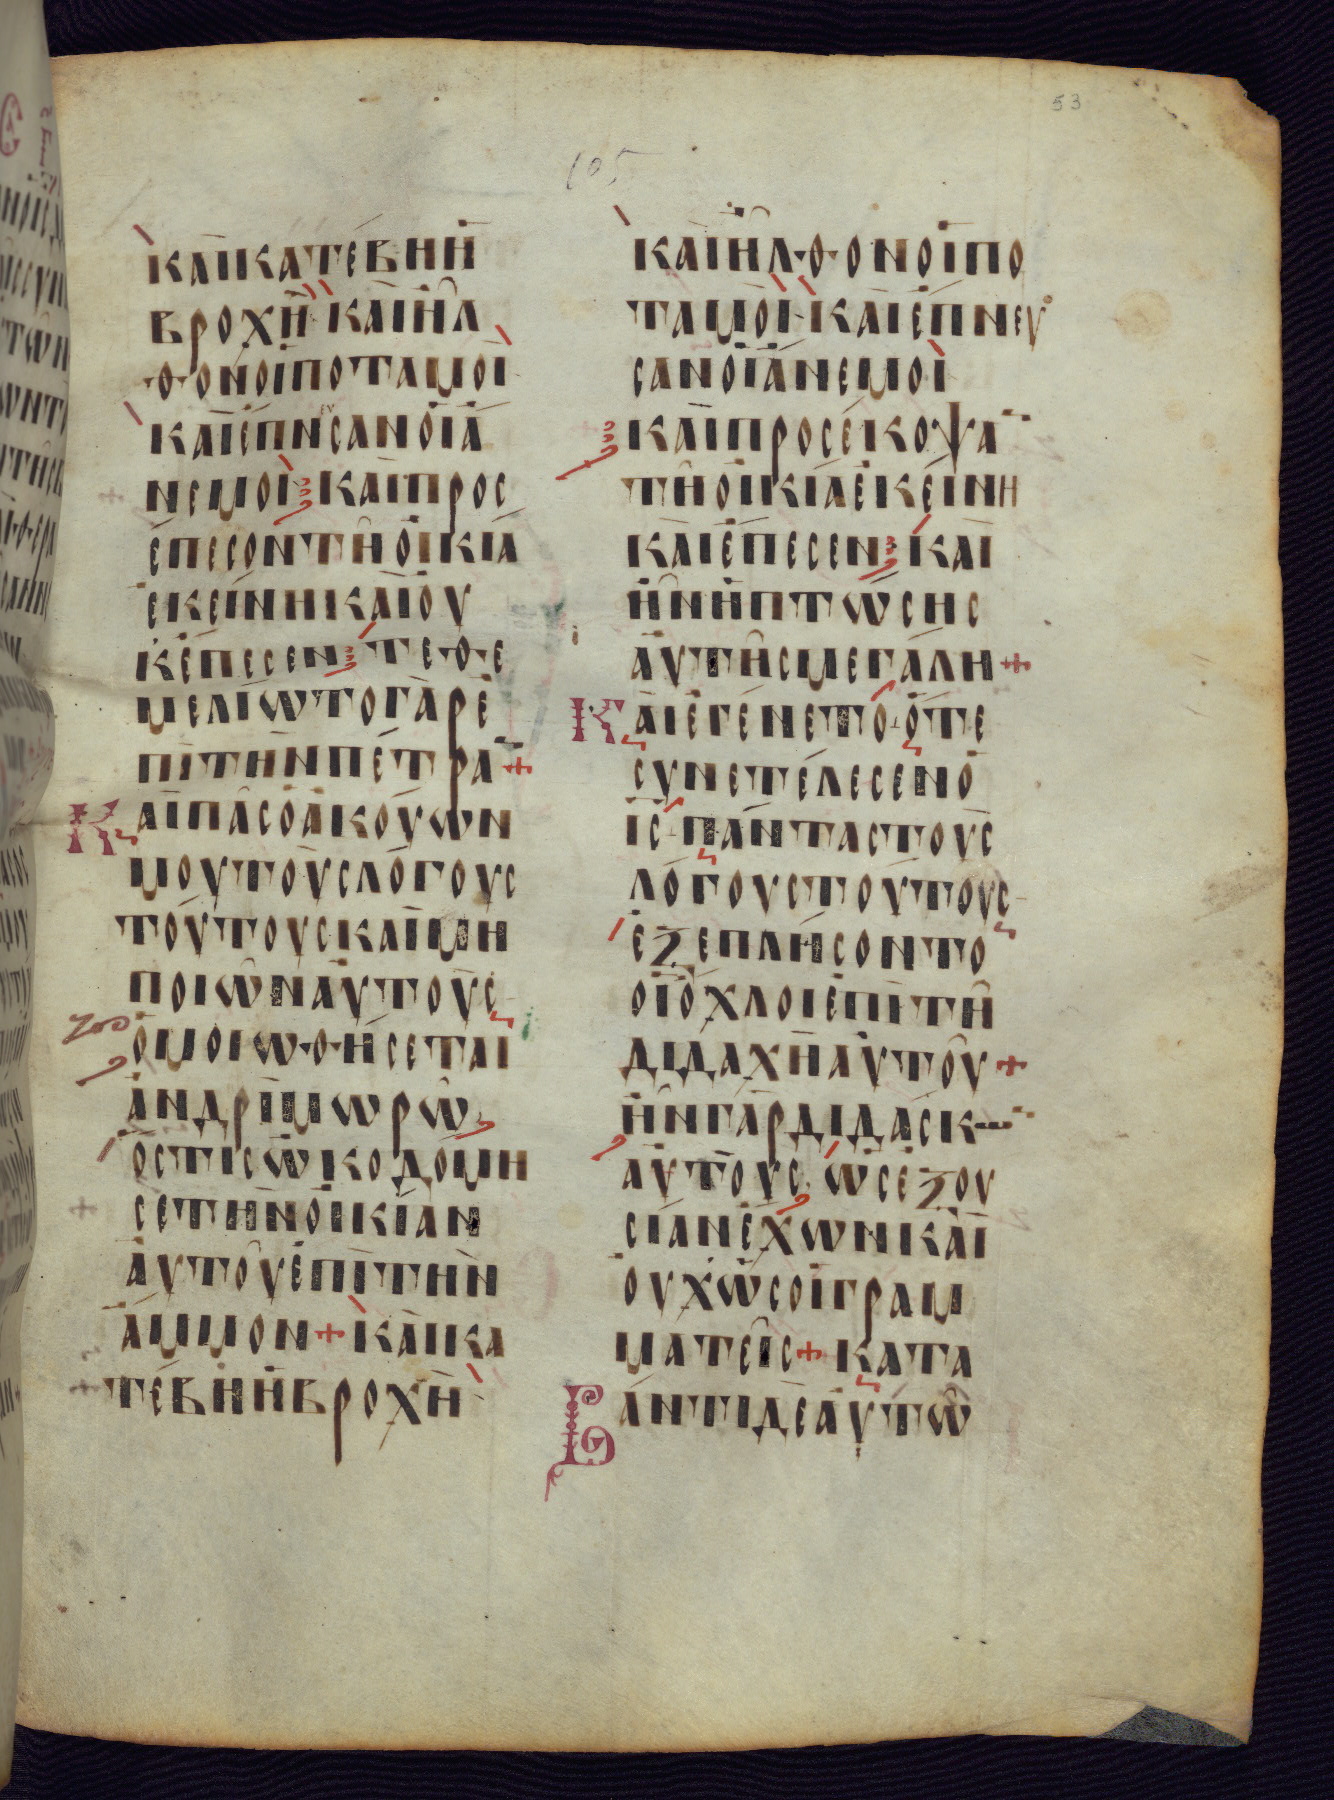 53
105
καὶ κατέβη ἡ
βροχὴ καὶ ἦλ
θον οἱ ποταμοὶ
καὶ ἔπνευσαν οἱ ἄ
νεμοι καὶ προσ
έπεσον τῆ οἰκία
ἐκείνη καὶ οὐ
κ ἔπεσεν τεθε
μελίωτο γὰρ ἐ
πὶ τὴν πέτρα
Καὶ πᾶς ὁ ἀκούων
μου τοὺς λόγους
τούτους καὶ μὴ
ποιῶν αὐτοὺς
ὁμοιωθήσεται
ἀνδρὶ μωρῶ
ὅστις ὠκοδόμη
σε τὴν οἰκίαν
αὐτοῦ ἐπὶ τὴν
ἄμμον καὶ κα
τέβη ἡ βροχὴ
καὶ ἦλθον οἱ πο
ταμοὶ καὶ ἔπνευ
σαν οἱ ἄνεμοι
καὶ προσέκοψα
τῆ οἰκία ἐκείνη
καὶ ἔπεσεν καὶ
ἦν ἡ πτῶσης
αὐτῆς μεγάλη
Καὶ ἐγένετο ὅτε
συνετέλεσεν ὁ
ις πάντας τοὺς
λόγους τούτους
ἐξεπλήσοντο
οἱ ὄχλοι ἐπὶ τῆ
διδαχῆ αὐτοῦ
ἦν γὰρ διδάσκ
αὐτοὺς ὡς ἐξου
σίαν ἔχων καὶ
οὐχ ὡς οἱ γραμ
ματεῖς κατα
Βάντι δὲ αὐτῶ